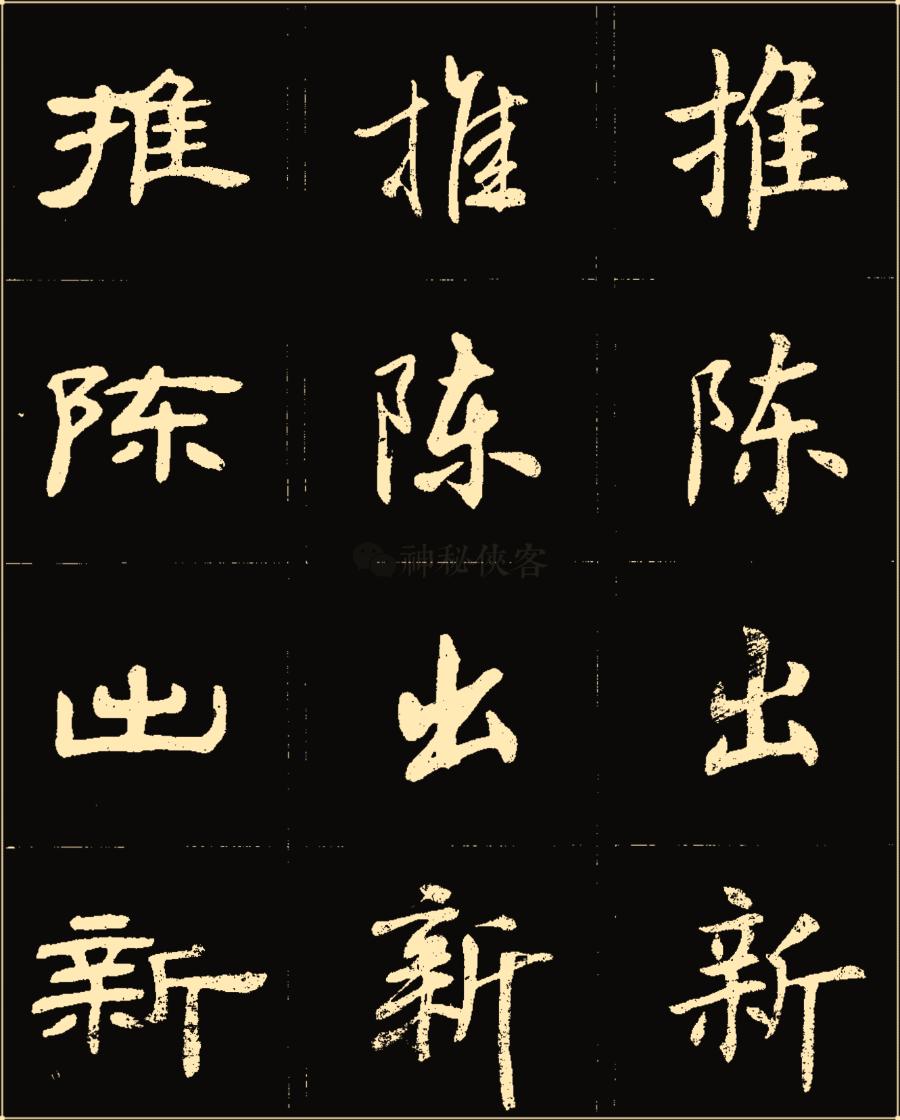 推 推 推
陈 陈 陈
神秘侠客
出 出 出
新 新 新